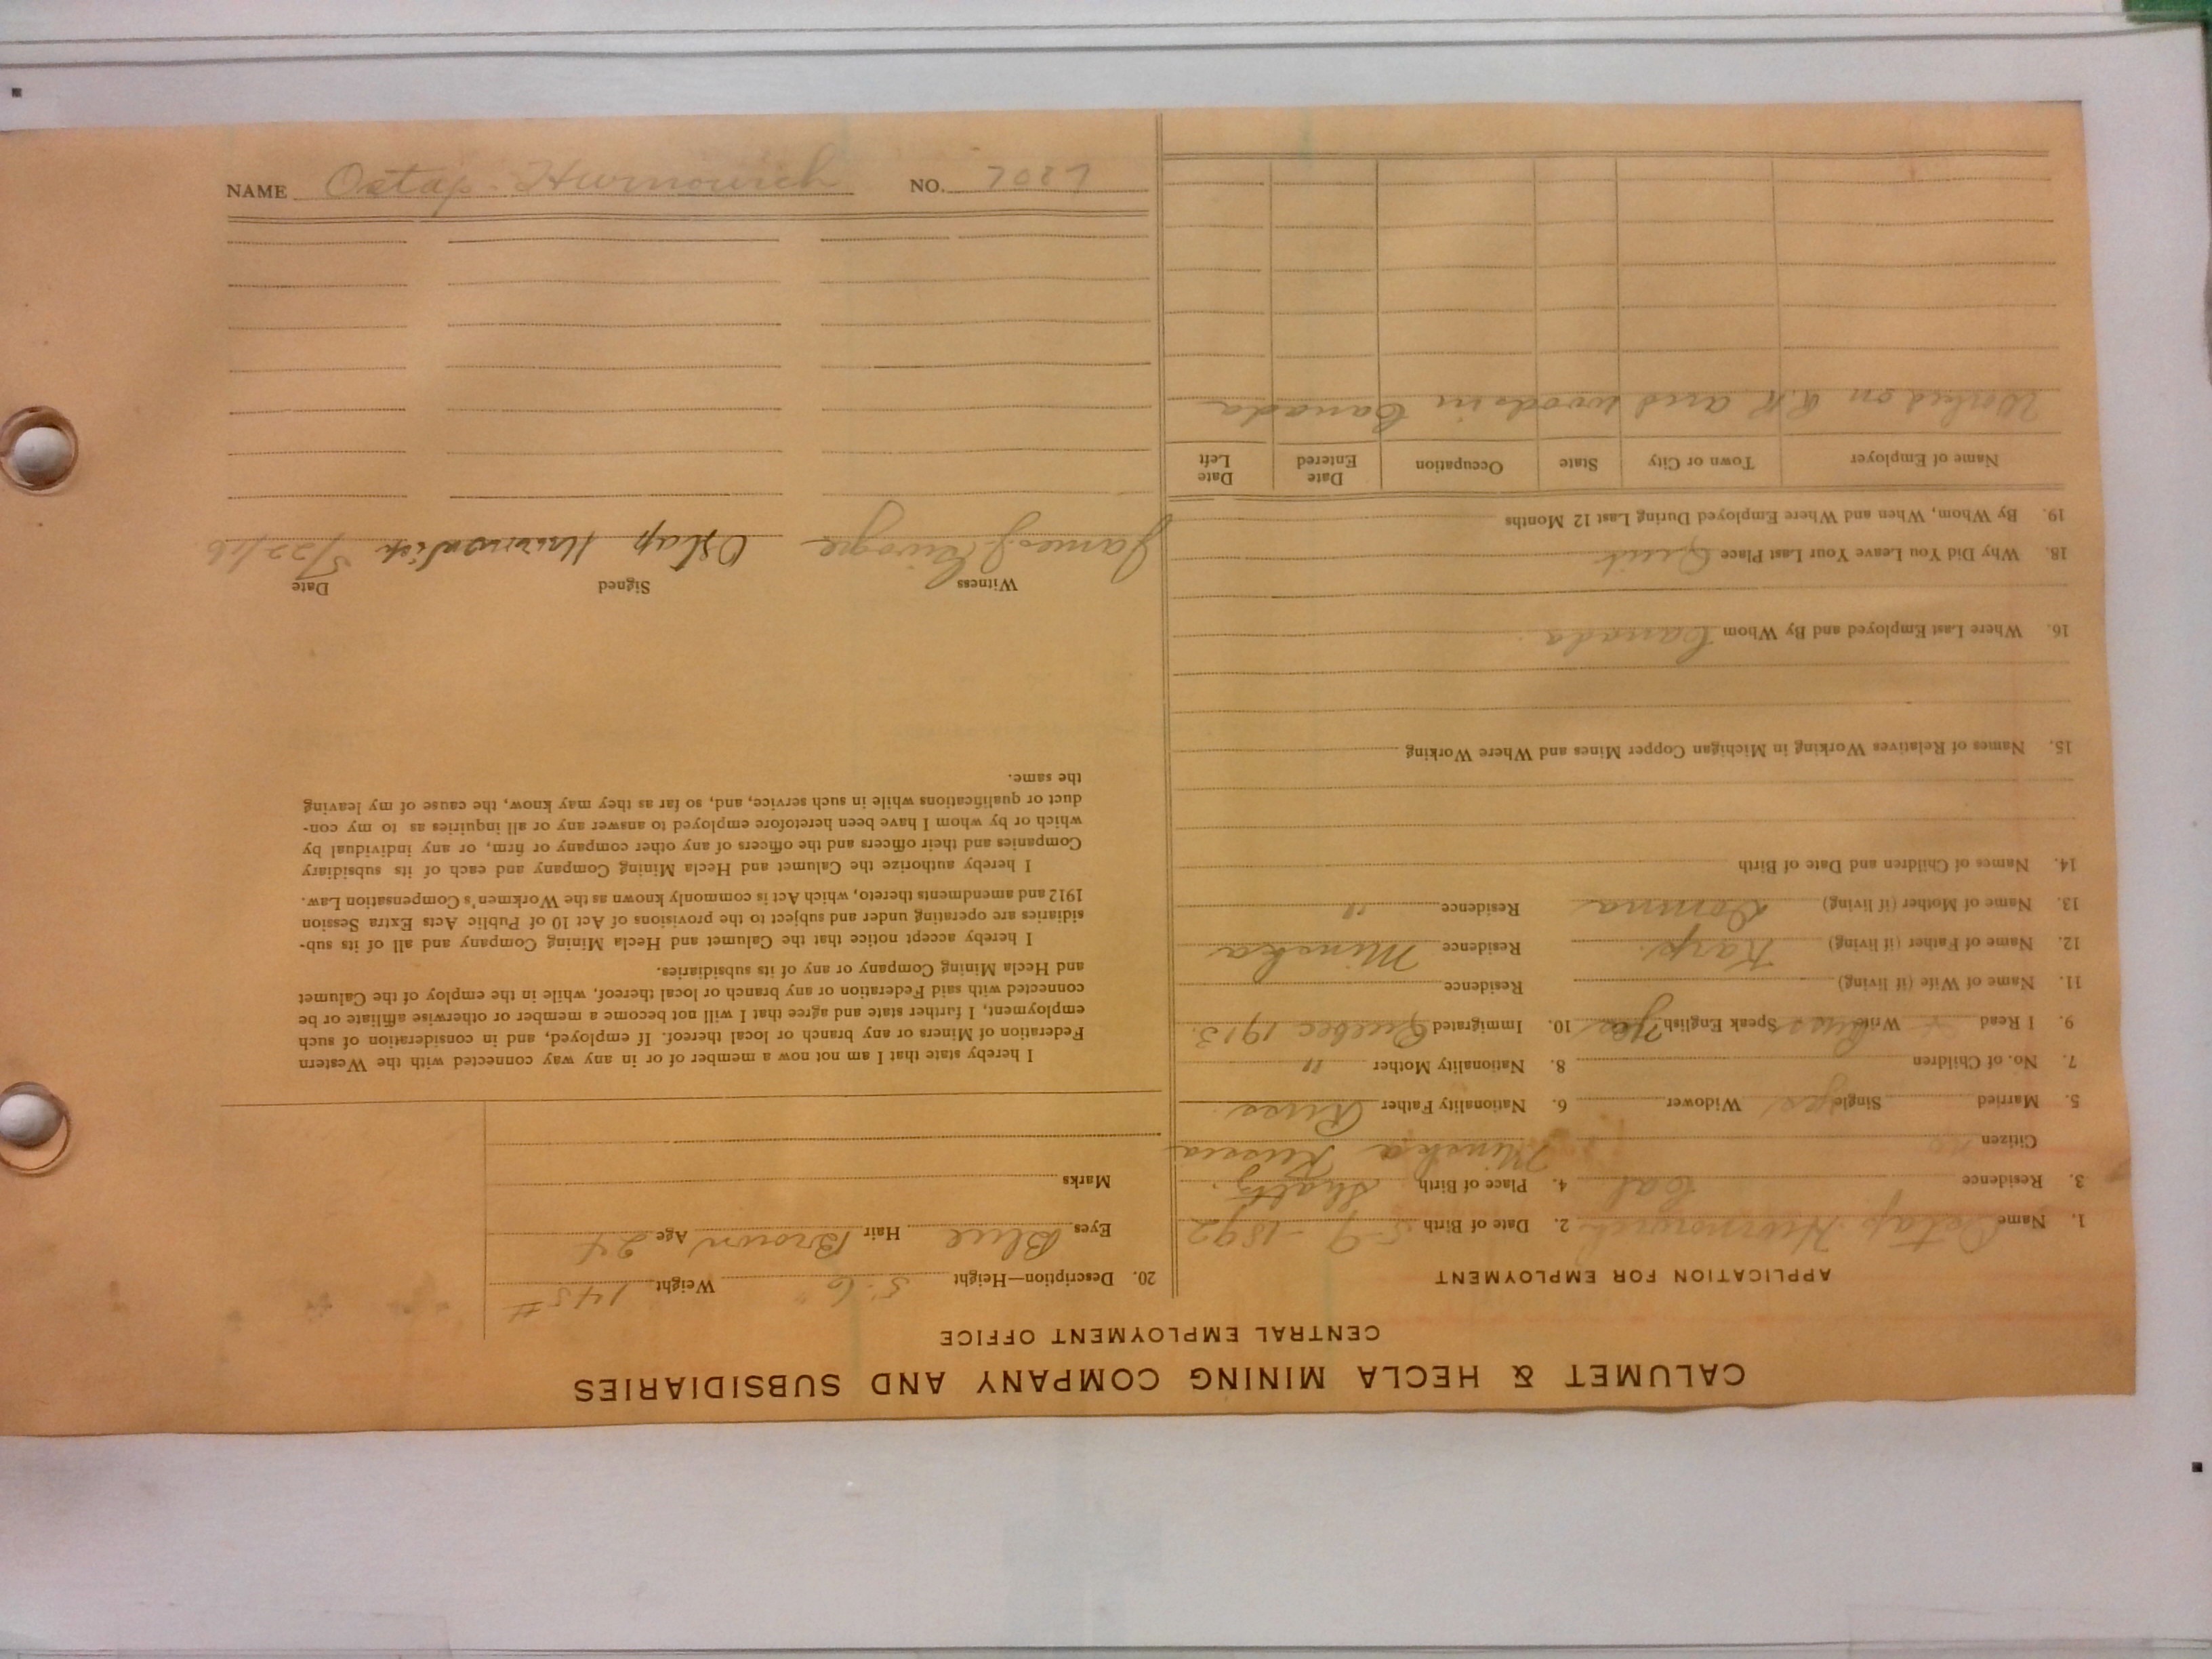 CALUMET & HECLA MINING COMPANY AND SUBSIDIARIES
CENTRAL EMPLOYMENT OFFICE
APPLICATION FOR EMPLOYMENT
1. Name Ostap Hurnowich 2. Date of Birth 5-9-1892
3. Residence Cal 4. Place of Birth
Citizen no Minska Russia
5. Married Single yes Widower 6. Nationality Father Russ
7. No. of Children 8. Nationality Mother "
9. I Read Write Russ Speak English Yes 10. Immigrated Quebec 1913
11. Name of Wife (if living) Residence
12. Name of Father (if living) Karp. Residence Minska
13. Name of Mother (if living) Domna Residence "
14. Names of Children and Date of Birth
15. Names of Relatives Working in Michigan Copper Mines and Where Working
16. Where Last Employed and By Whom Canada
18. Why Did You Leave Your Last Place Quit
19. By Whom, When and Where Employed During Last 12 Months
Name of Employer Town or City State Occupation Date Entered Date Left
Worked on R.R. and woods in Canada
20. Description—Height 5'-6" Weight 145#
Eyes Blue Hair Brown Age 24
Marks
I hereby state that I am not now a member of or in any way connected with the Western
Federation of Miners or any branch or local thereof. If employed, and in consideration of such
employment, I further state and agree that I will not become a member or otherwise affiliate or be
connected with said Federation or any branch or local thereof, while in the employ of the Calumet
and Hecla Mining Company or any of its subsidiaries.
I hereby accept notice that the Calumet and Hecla Mining Company and all of its sub-
sidiaries are operating under and subject to the provisions of Act 10 of Public Acts Extra Session
1912 and amendments thereto, which Act is commonly known as the Workmen's Compensation Law.
I hereby authorize the Calumet and Hecla Mining Company and each of its subsidiary
Companies and their officers and the officers of any other company or firm, or any individual by
which or by whom I have been heretofore employed to answer any or all inquiries as to my con-
duct or qualifications while in such service, and, so far as they may know, the cause of my leaving
the same.
Witness Signed Date
James Ostap 5/22/16
NAME Ostap Hurnowich NO.